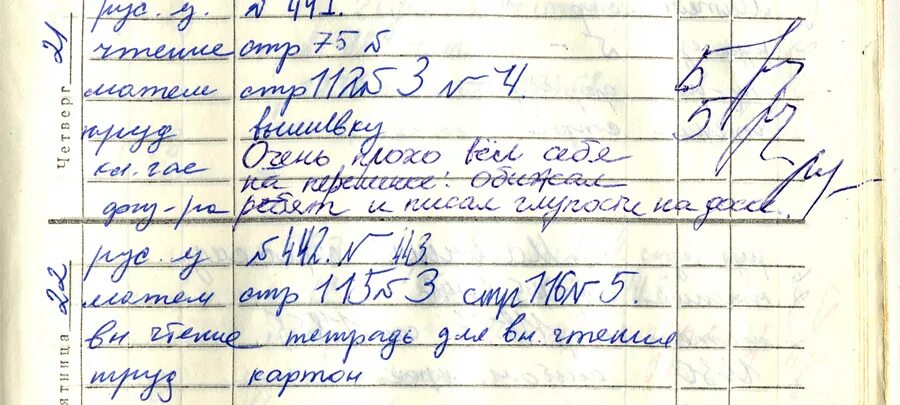 рус. я. № 441.
21 Четверг
чтение стр 75 №
матем стр 112 № 3 № 4. 5
труд вышивку 5
кл. час Очень плохо вёл себя
на перемене: обижал
физ-ра ребят и писал глупости на доске.
22 пятница
рус. я № 442. № 443.
матем стр 115 № 3 стр 116 № 5.
вн. чтение тетрадь для вн. чтения
труд картон